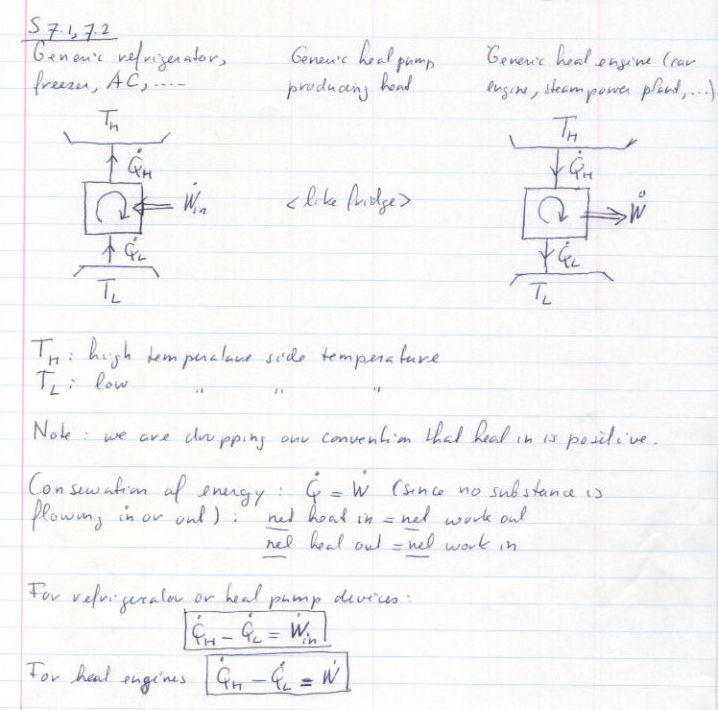 S 7.1, 7.2
Generic refrigerator,
freezer, AC, ....
Generic heat pump
producing heat
Generic heat engine (car
engine, steam power plant, ...)
T_H
Q̇_H
Ẇ_in
Q̇_L
T_L
<like fridge>
T_H
Q̇_H
Ẇ
Q̇_L
T_L
T_H : high temperature side temperature
T_L : low " " "
Note : we are dropping our convention that heat in is positive.
Conservation of energy : Q̇ = Ẇ (since no substance is
flowing in or out) : net heat in = net work out
net heat out = net work in
For refrigerator or heat pump devices :
Q̇_H - Q̇_L = Ẇ_in
For heat engines Q̇_H - Q̇_L = Ẇ